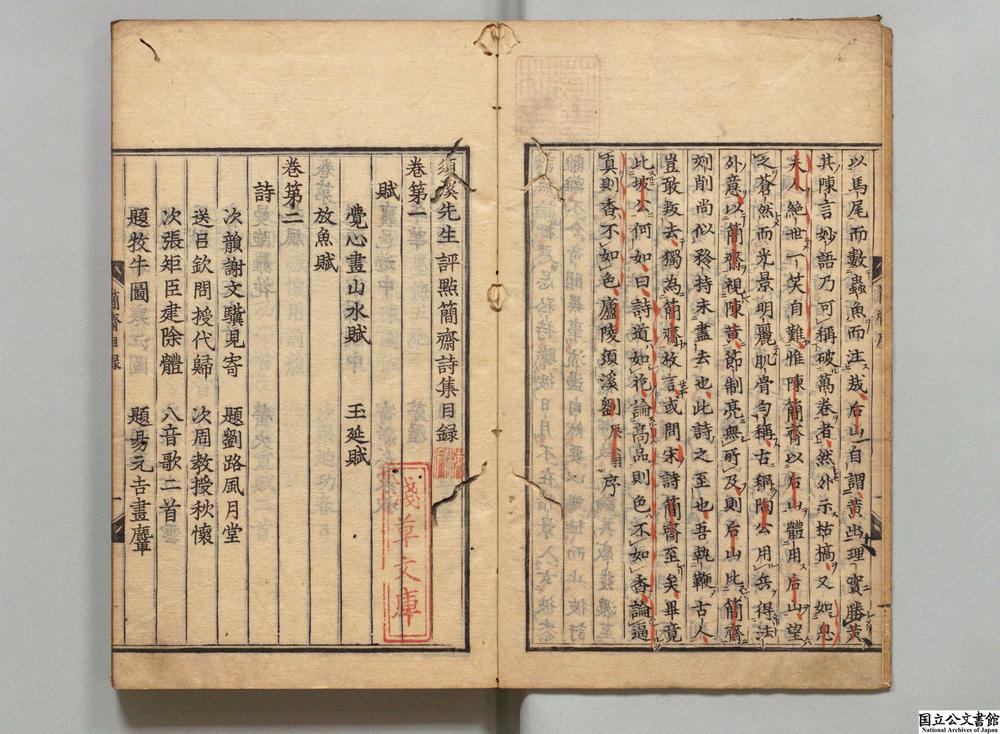 以馬尾而數蟲魚而注哉后山自謂黃出理實勝黃
其陳言妙語乃可稱破萬卷者然外示枯槁又如息
夫人絕世一笑自難惟陳簡齋以后山體用后山望
之蒼然而光景明麗肌骨勻稱古稱陶公用兵得法
外意以簡齋視陳黃節制亮無所及則后山比簡齋
刻削尚似矜持未盡去也此詩之至也吾執鞭古人
豈敢叛去獨為簡齋故言或問宋詩簡齋至矣畢竟
比坡公何如曰詩道如花論高品則色不如香論逼
真則香不如色廬陵須溪劉辰翁序
簡齋序
須溪先生評點簡齋詩集目録
卷第一
賦
覺心畫山水賦 玉延賦
放魚賦
卷第二
詩
次韻謝文驥見寄 題劉路風月堂
送呂欽問授代歸 次周教授秋懷
次張矩臣建除體 八音歌二首
題牧牛圖 題易元吉畫麞
簡齋目録
一
淺草文庫
国立公文書館
National Archives of Japan